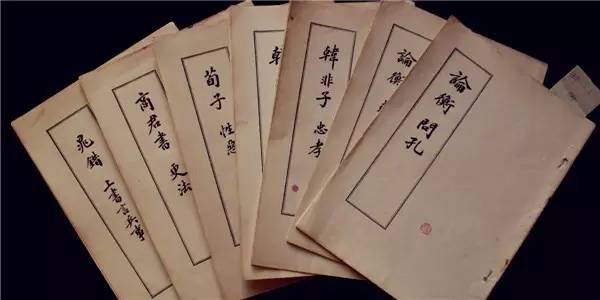 論衡 問孔
論衡
韓非子 忠孝
荀子 性惡
商君書 更法
晁錯 上書言兵事